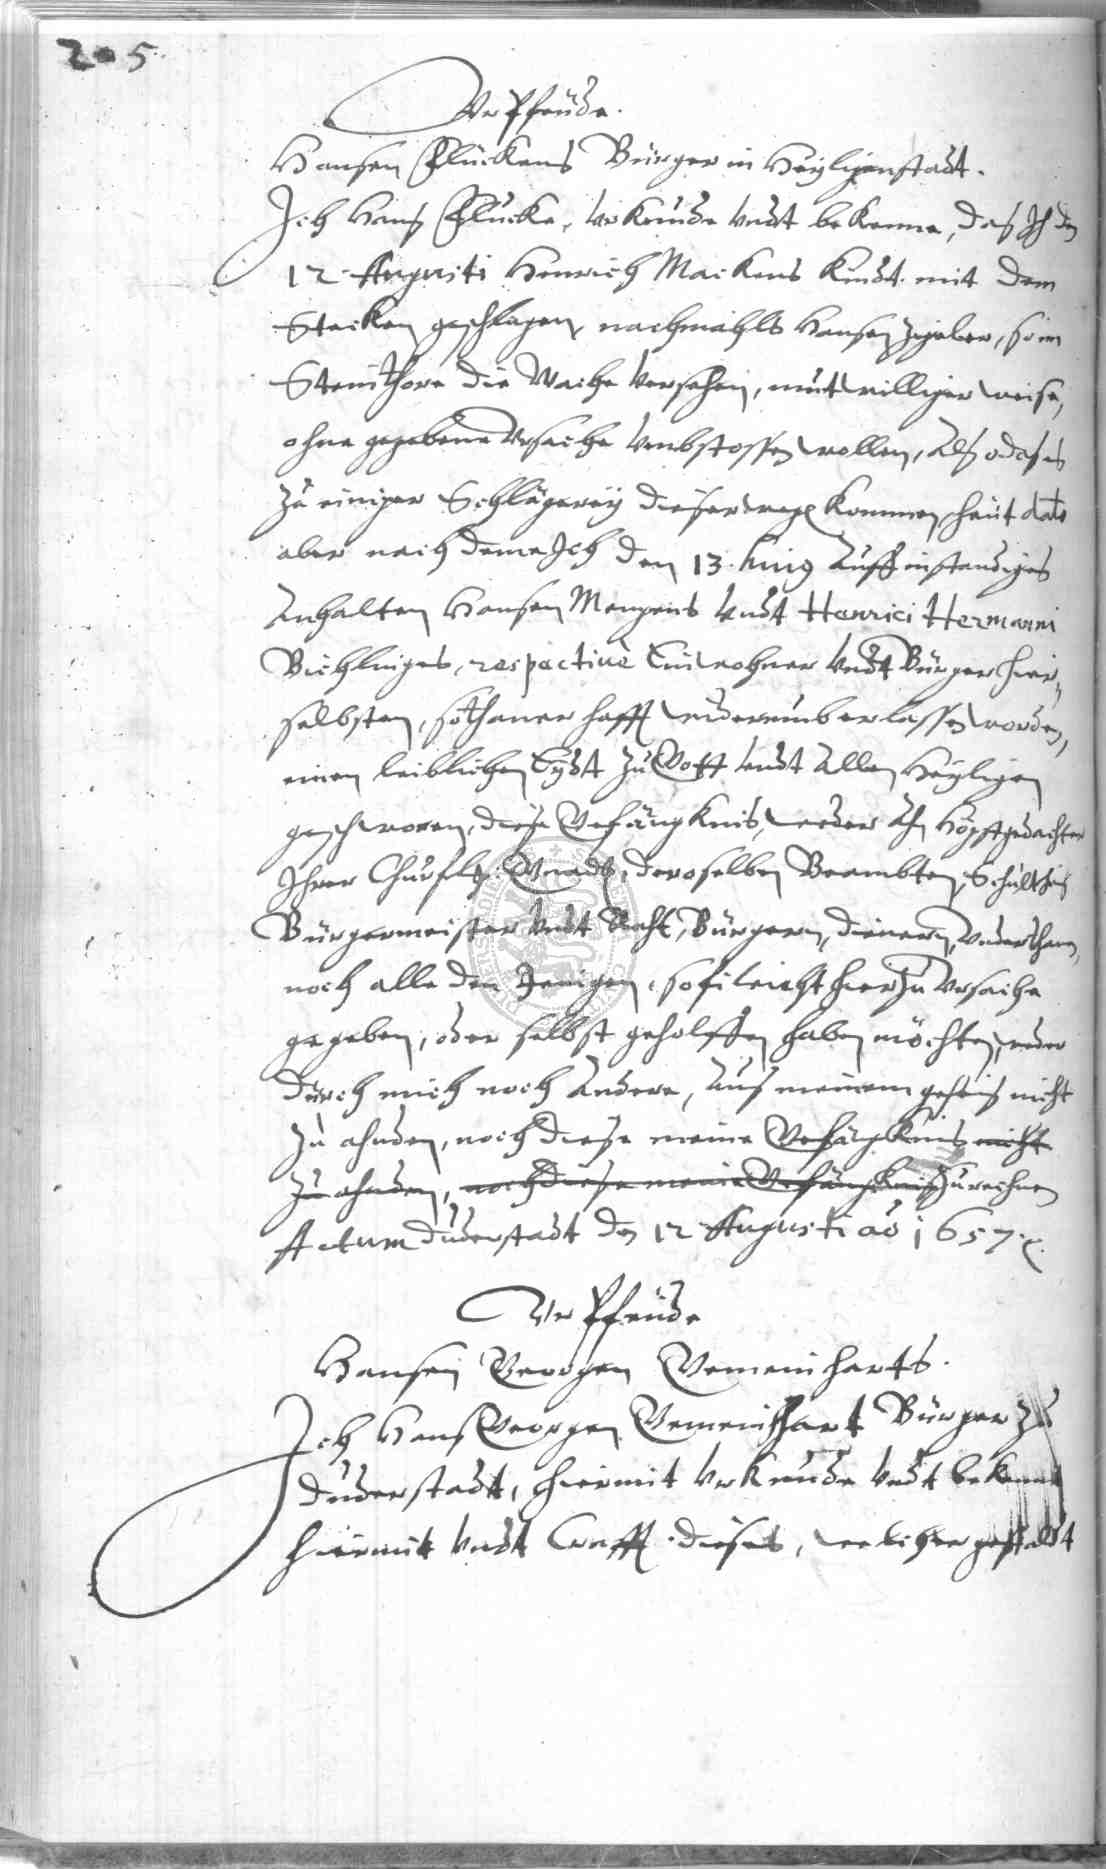 205
Urpfeüde.
Hansen Flückens Bürger in Heyligenstadt.
Ich Hanß Flucke, Urkunde undt bekenne, daß Ich den
12 Augusti Henrich Mackens Kindt mit dem
Stecken geschlagen, nachmahls Hansen so im
Steinthore die Wache versehen, mutwilliger weise,
ohne gegebene Ursache umbstossen wollen, Also das es
zu einiger Schlägereÿ dieserwege kommen, heüt dato
aber nach deme Ich den 13. huius Auff instendiges
Anhalten Hansen Mengens undt Henrici Hermanni
Bichlinges, respective Einwohner undt Bürger hier,
selbsten, sothaner hafft wiederumb erlassen worden,
einen leiblichen Eydt zu Gott undt Allen Heyligen
geschworen, diese Gefängknis, weder Ahn Höchstgedachter
Ihrer Churfl. Gnad, deroselben Beambten, Schultheis
Bürgermeister undt Raht, Bürgern, dienern, underthanen,
noch alle den Jenigen, so vileicht hierzu Ursache
gegeben, oder selbst geholffen haben möchten, weder
durch mich noch Andere, Aus meinem geheis nicht
zu ahnden, noch diese meine Gefängknis nicht
zu ahnden, noch diese meine Gefängknis zu rechnen
Actum duderstadt den 12 Augusti ao 1657.
Urpfeüde
Hansen Georgen Gemeinharts.
Ich Hans Georgen Gemeinhart Bürger zu
duderstadt, hiermit Urkunde undt bekenne
hiermit undt Crafft dieses, welcher gestaldt